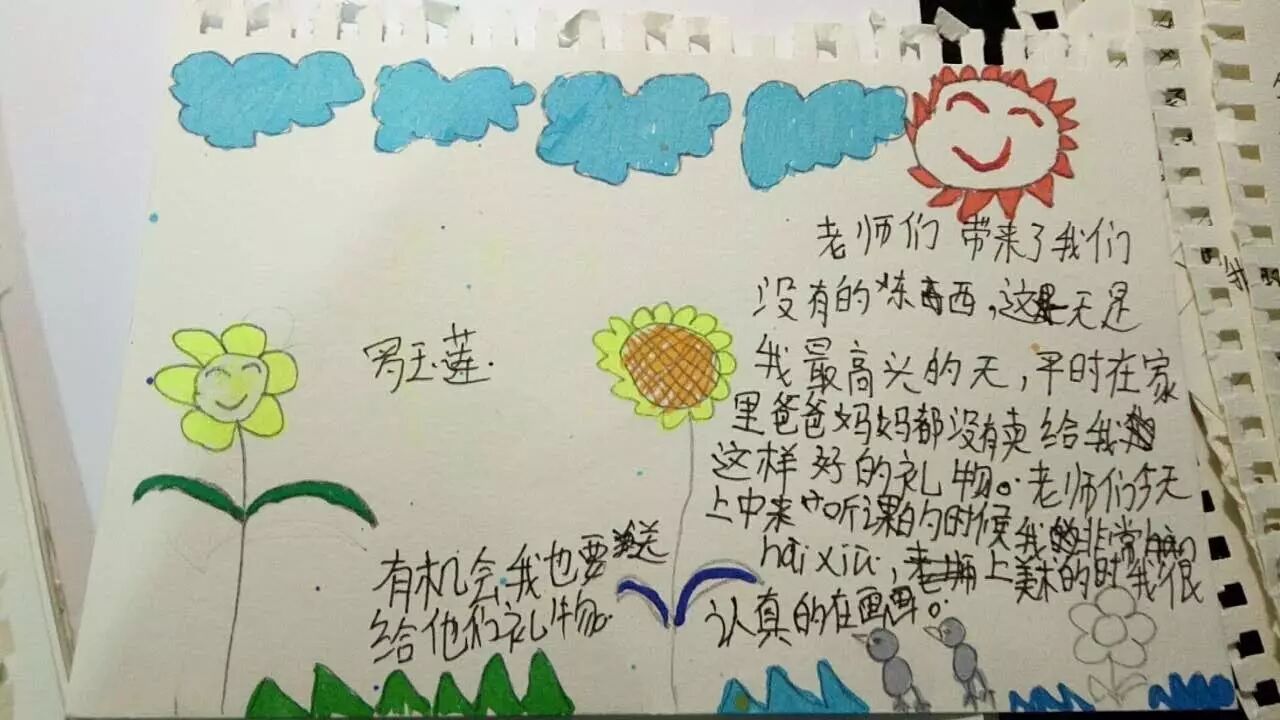 罗玉莲.
老师们 带来了我们
没有的东西,这是天是
我最高兴的天,平时在家
里爸爸妈妈都没有卖给我
这样好的礼物。老师们今天
上中来听课的时候我非常的
haixiu,老师上美术的时我很
认真的在画画。
有机会我也要送
给他们礼物.